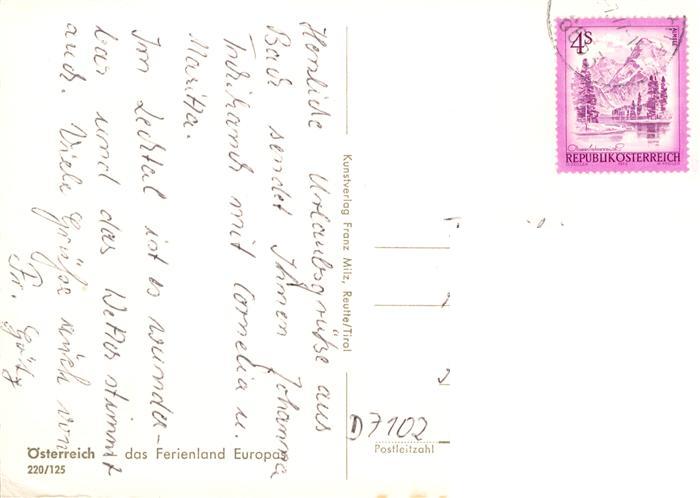 Herzliche Urlaubsgrüße aus
Bach sendet Ihnen Johanna
mit Cornelia u.
Maritta.
Im Lechtal ist es wunder-
bar und das Wetter stimmt
auch. Viele Grüße auch von
Fr. Götz
Österreich das Ferienland Europas
220/125
Kunstverlag Franz Milz, Reutte/Tirol
4S
ALMSEE
REPUBLIK ÖSTERREICH
D7102
Postleitzahl